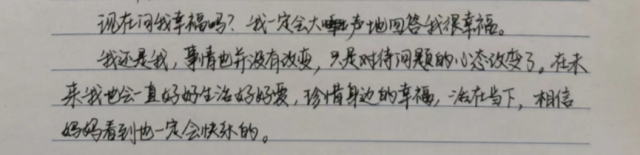 现在问我幸福吗？我一定会大声地回答我很幸福。
我还是我，事情也并没有改变，只是对待问题的心态改变了。在未
来我也会一直好好生活好好爱，珍惜身边的幸福，活在当下，相信
妈妈看到也一定会快乐的。